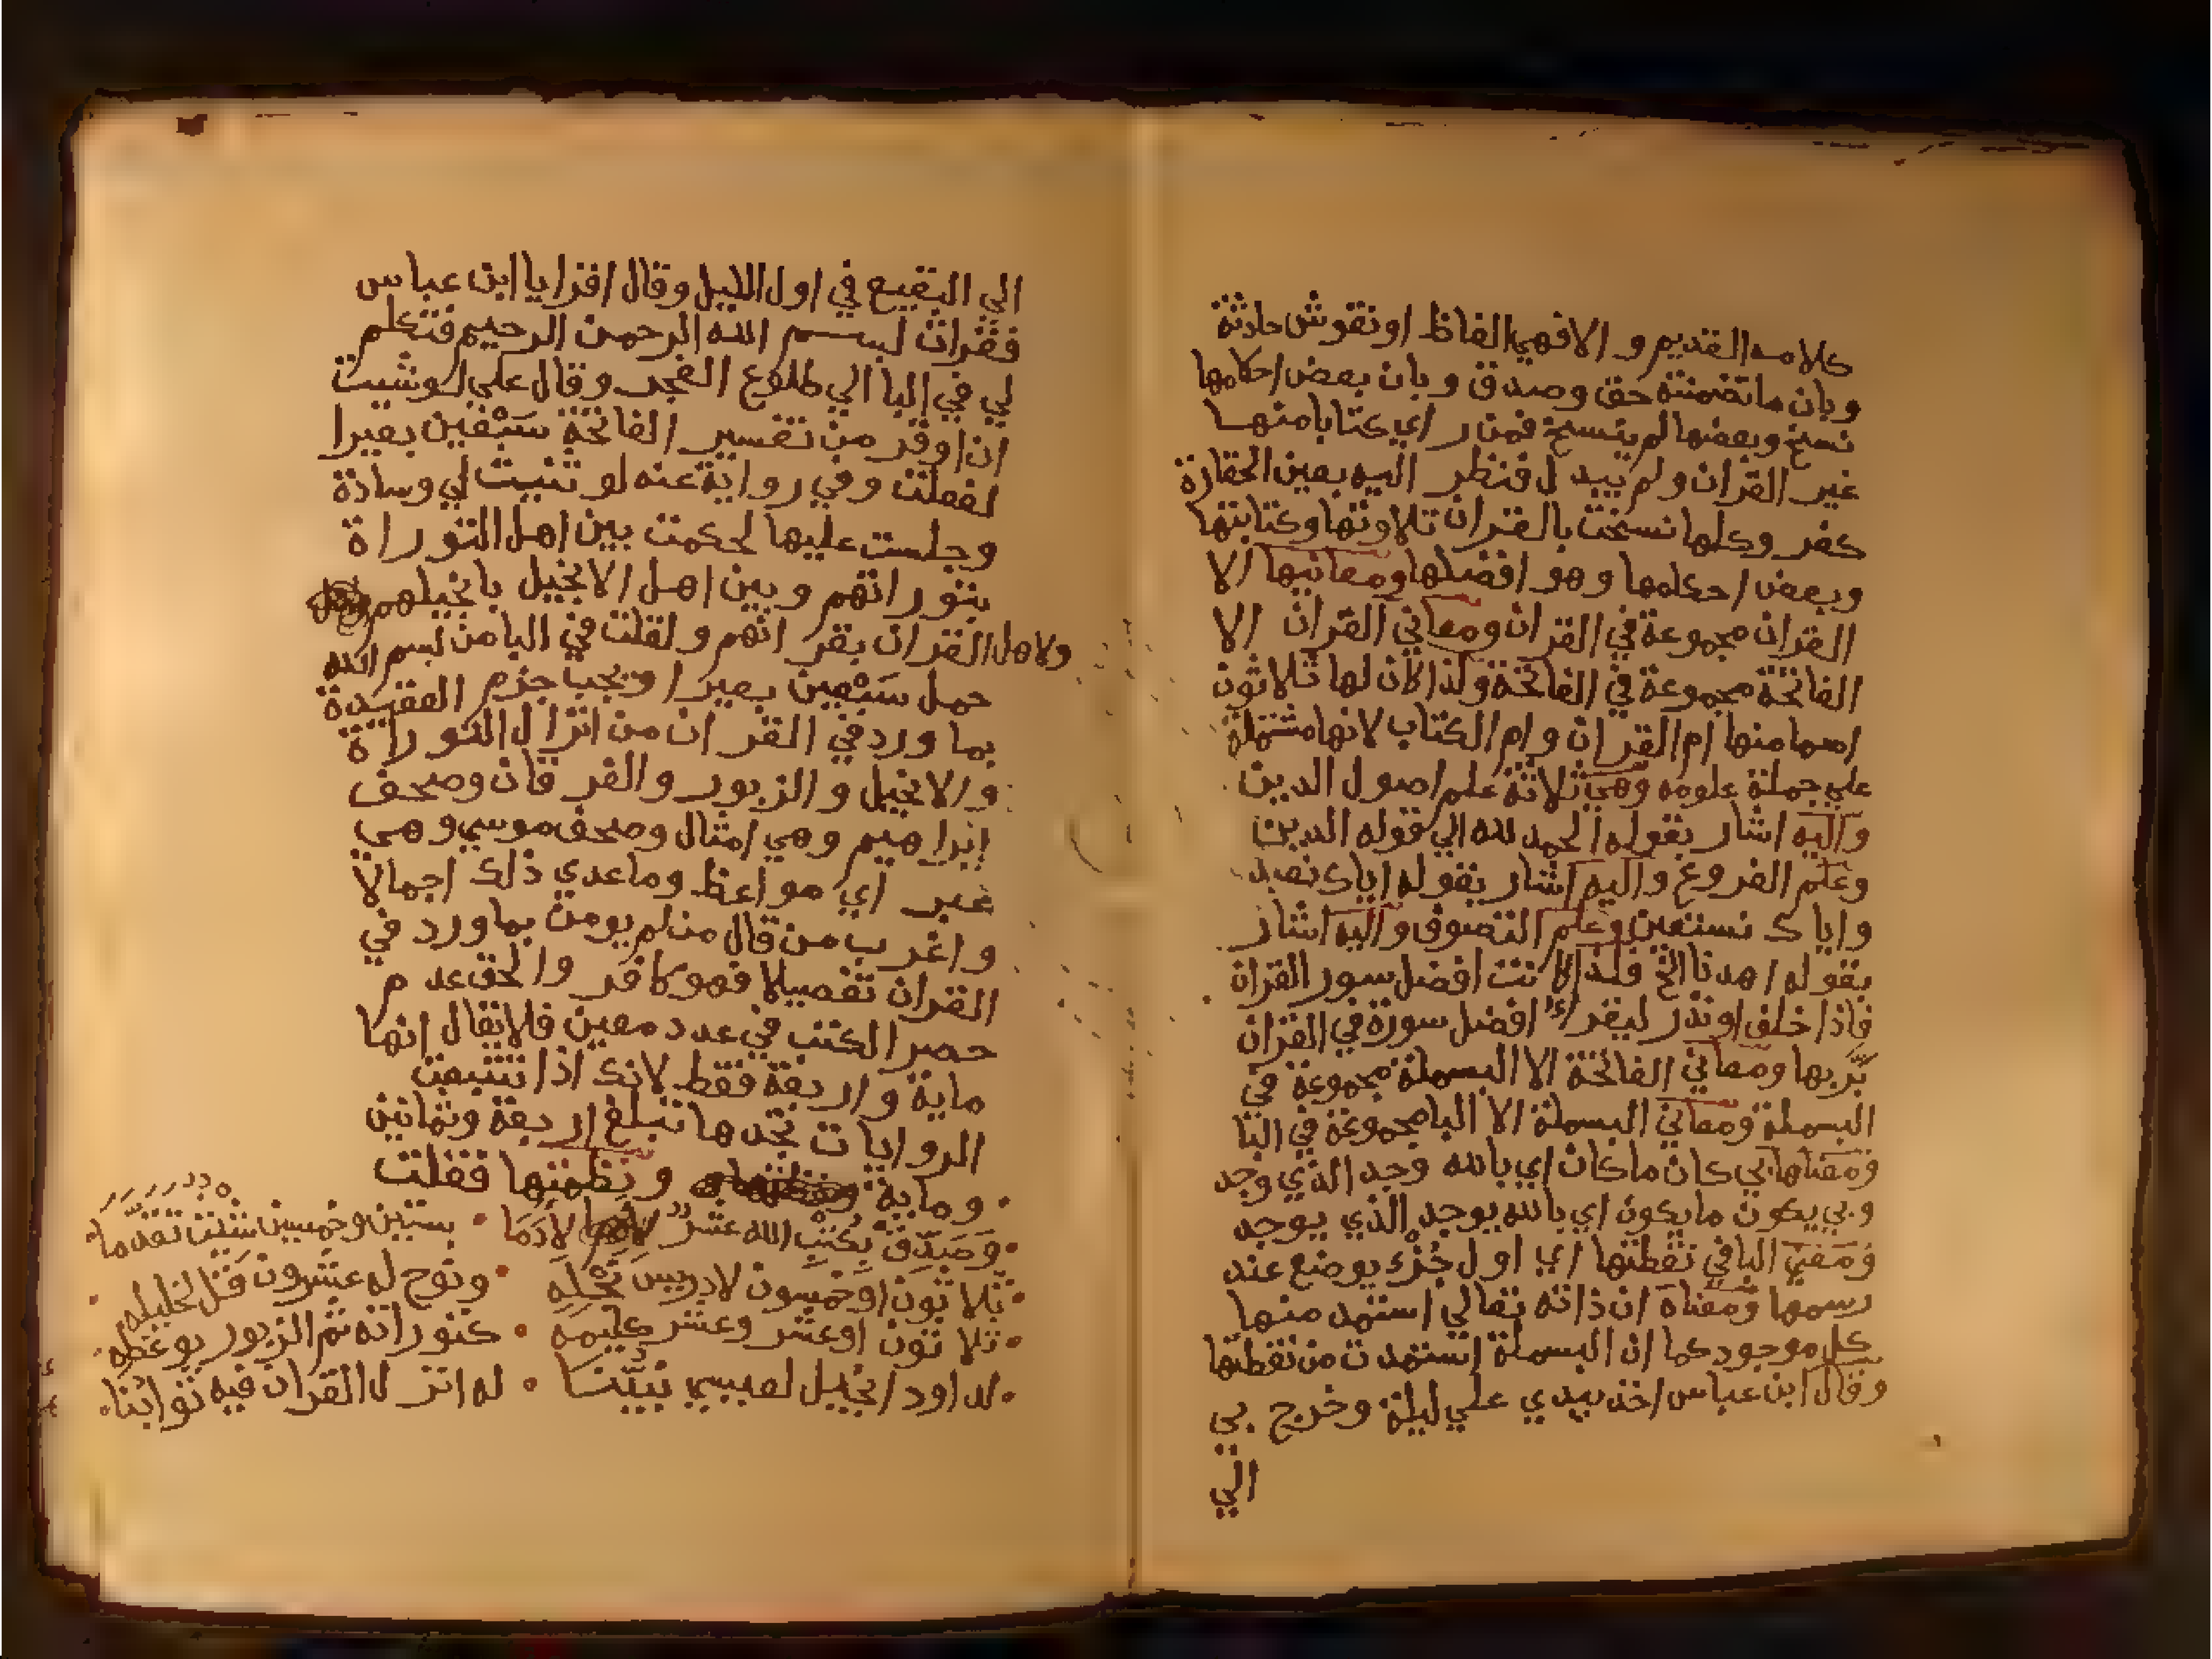 كلامه القديم والا فهي الفاظ او نقوش حادثة
وبان ما تضمنته حق وصدق وبان بعض احكامها
نسخ وبعضها لم ينسخ فمن راي كتابا منها
غير القران ولم يبدل فنظر اليه بعين الحقارة
كفر وكلها نسخت بالقران تلاوتها وكتابتها
وبعض احكامها وهو افضلها ومعانيها الا
القران مجموعة في القران ومعاني القران الا
الفاتحة مجموعة في الفاتحة ولذا كان لها ثلاثون
اسما منها ام القران وام الكتاب لانها مشتملة
علي جملة علومه وهي ثلاثة علم اصول الدين
واليه اشار بقوله الحمد لله الي قوله الدين
وعلم الفروع واليه اشار بقوله اياك نعبد
واياك نستعين وعلم التصوف واليه اشار
بقوله اهدنا الخ فلذا كانت افضل سور القران
فاذا حلف او نذر ليقرا افضل سورة في القران
بر بها ومعاني الفاتحة الا البسملة مجموعة في
البسملة ومعاني البسملة الا البا مجموعة في البا
ومعناها بي كان ما كان اي بالله وجد الذي وجد
وبي يكون ما يكون اي بالله يوجد الذي يوجد
ومعني البا في نقطتها اي اول جُزْء يوضع عند
رسمها ومعناه ان ذاته تعالي استمد منها
كل موجود كما ان البسملة استمدت من نقطتها
وقال ابن عباس اخذ بيدي علي ليلة وخرج بي
الي
الي البقيع في اول الليل وقال اقرا يا ابن عباس
فقرات بسم الله الرحمن الرحيم فتكلم
لي في البا الي طلوع الفجر وقال علي لو شيت
ان اوقر من تفسير الفاتحة سَبْعين بعيرا
لفعلت وفي رواية عنه لو ثنيت لي وسادة
وجلست عليها لحكمت بين اهل التوراة
بتوراتهم وبين اهل الانجيل بانجيلهم
ولاهل القران بقرانهم ولقلت في البا من بسم الله
حمل سَبْعين بعيرا ويجب جزم العقيدة
بما ورد في القران من انزال التوراة
والانجيل والزبور والفرقان وصحف
إبراهيم وهي امثال وصحف موسي وهي
عبر اي مواعظ وما عدي ذلك اجمالا
واغرب من قال من لم يومن بما ورد في
القران تفصيلا فهو كافر والحق عدم
حصر الكتب في عدد معين فلا يقال انها
ماية واربعة فقط لانك اذا تتبعت
الروايات تجدها تبلغ اربعة وثمانين
وماية ونظمتها فقلت
وَصَدِّقْ بِكُتْبِ الله عشرٌ لادَمَا • بستين وخمسين شيث تقدَّما
ثلاثون او خمسون لادريس • ونوح له عشرون قل لخليله
ثلاثون او عشر وعشر كليمه • كتوراته ثم الزبور بوعظه
لداود انجيل لعيسي نبيِّنا • له انزل القران فيه ثوابُنا